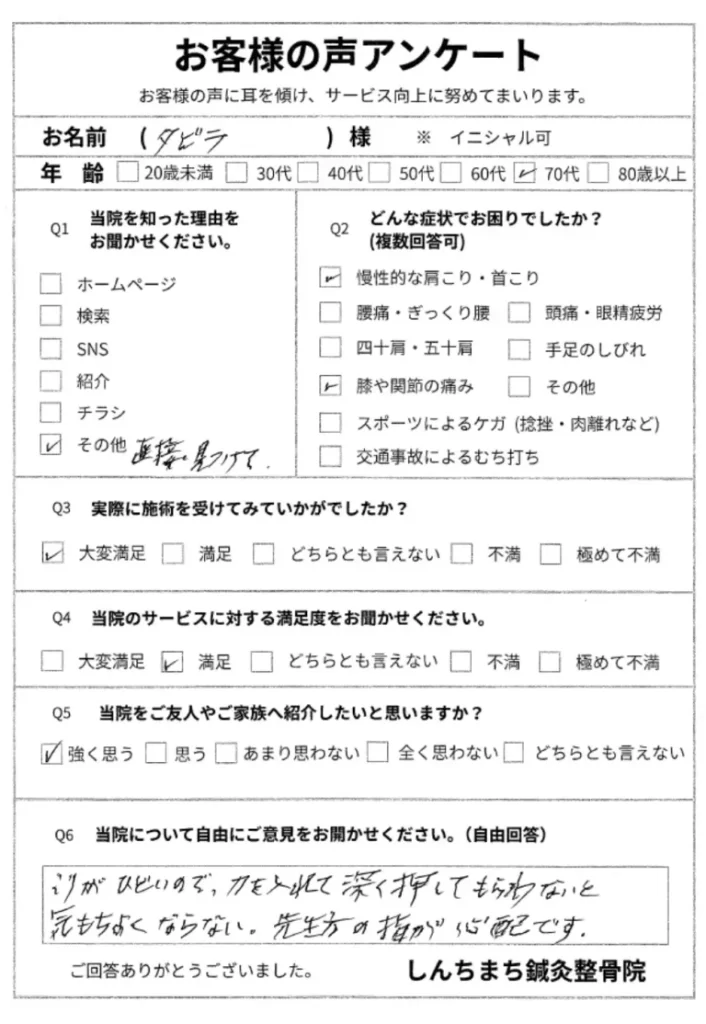 お客様の声アンケート
お客様の声に耳を傾け、サービス向上に努めてまいります。
お名前 (タビラ) 様 ※ イニシャル可
年 齢 □20歳未満 □30代 □40代 □50代 □60代 ☑70代 □80歳以上
Q1 当院を知った理由を
お聞かせください。
□ ホームページ
□ 検索
□ SNS
□ 紹介
□ チラシ
☑ その他 直接見つけて.
Q2 どんな症状でお困りでしたか?
(複数回答可)
☑ 慢性的な肩こり・首こり
□ 腰痛・ぎっくり腰 □ 頭痛・眼精疲労
□ 四十肩・五十肩 □ 手足のしびれ
☑ 膝や関節の痛み □ その他
□ スポーツによるケガ (捻挫・肉離れなど)
□ 交通事故によるむち打ち
Q3 実際に施術を受けてみていかがでしたか?
☑ 大変満足 □ 満足 □ どちらとも言えない □ 不満 □ 極めて不満
Q4 当院のサービスに対する満足度をお聞かせください。
□ 大変満足 ☑ 満足 □ どちらとも言えない □ 不満 □ 極めて不満
Q5 当院をご友人やご家族へ紹介したいと思いますか?
☑ 強く思う □ 思う □ あまり思わない □ 全く思わない □ どちらとも言えない
Q6 当院について自由にご意見をお聞かせください。(自由回答)
こりがひどいので、力を入れて深く押してもらわないと
気もちよくならない。先生方の指が心配です.
ご回答ありがとうございました。 しんちまち鍼灸整骨院